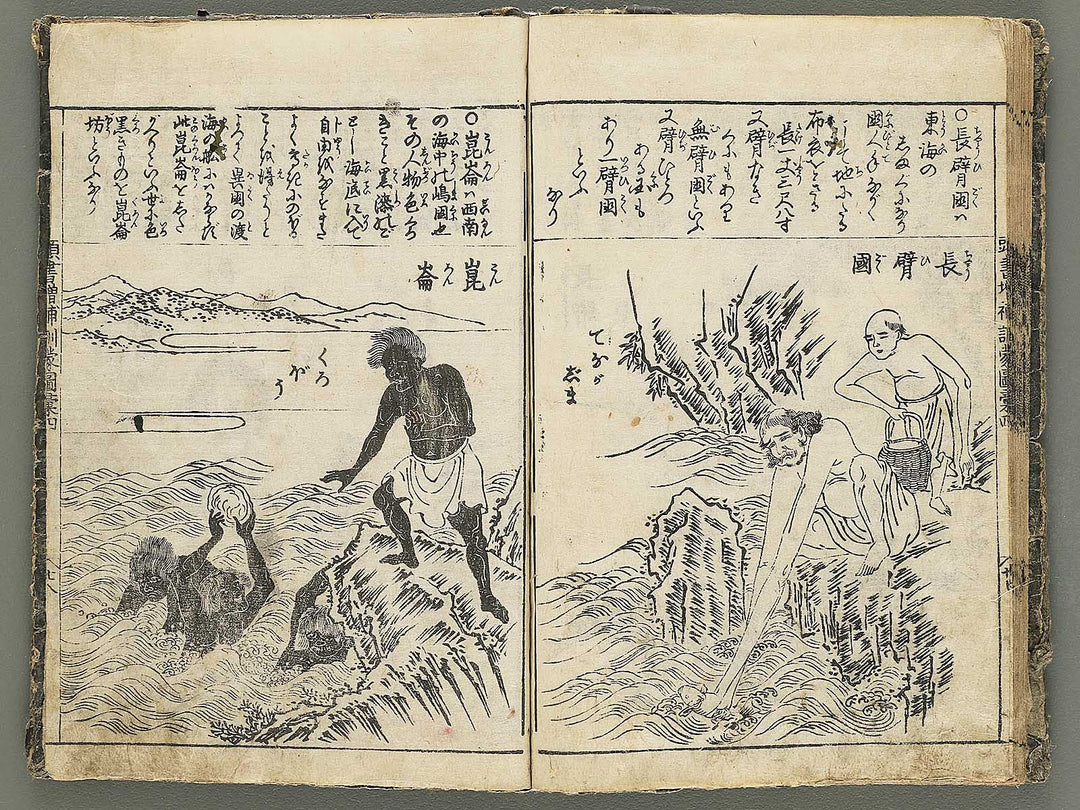 〇長臂國ハ
東海の
國人手ながく
して地にたる
布衣を
長一丈三尺八寸
又臂なき
くにもあり
無臂國といふ
又臂ひとつ
ある國も
あり一臂國
といふ
なり
長臂國
ちやうひこく
てなが
じま
頭書増補訓蒙圖彙四
〇崑崙ハ西南
の海中の嶋國也
その人物色くろ
きこと黒漆のご
とし海底に入て
自由をなす
ことを得たりと
よつて異國の渡
海の船にハかならず
此崑崙をした
がへりといふ世に色
黒きものを崑崙
坊といふなり
崑崙
こんろん
くろ
ばう
頭書増補訓蒙圖彙四